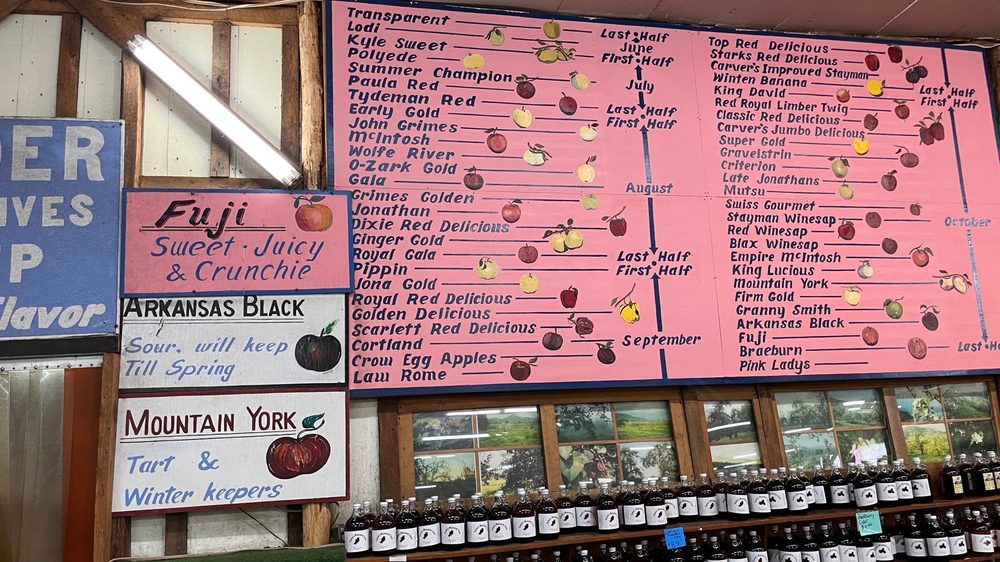 DER
IVES
P
Flavor
Fuji
Sweet · Juicy
& Crunchie
ARKANSAS BLACK
Sour, will keep
Till Spring
MOUNTAIN YORK
Tart &
Winter keepers
Transparent
Lodi
Kyle Sweet
Polyede
Summer Champion
Paula Red
Tydeman Red
Early Gold
John Grimes
McIntosh
Wolfe River
O-Zark Gold
Gala
Grimes Golden
Jonathan
Dixie Red Delicious
Ginger Gold
Royal Gala
Pippin
Jona Gold
Royal Red Delicious
Golden Delicious
Scarlett Red Delicious
Cortland
Crow Egg Apples
Law Rome
Last Half
June
First Half
July
Last Half
First Half
August
Last Half
First Half
September
Top Red Delicious
Starks Red Delicious
Carver's Improved Stayman
Winten Banana
King David
Red Royal Limber Twig
Classic Red Delicious
Carver's Jumbo Delicious
Super Gold
Gravelstrin
Criterion
Late Jonathans
Mutsu
Swiss Gourmet
Stayman Winesap
Red Winesap
Blax Winesap
Empire McIntosh
King Lucious
Mountain York
Firm Gold
Granny Smith
Arkansas Black
Fuji
Braeburn
Pink Ladys
Last Half
First Half
October
Last Ha